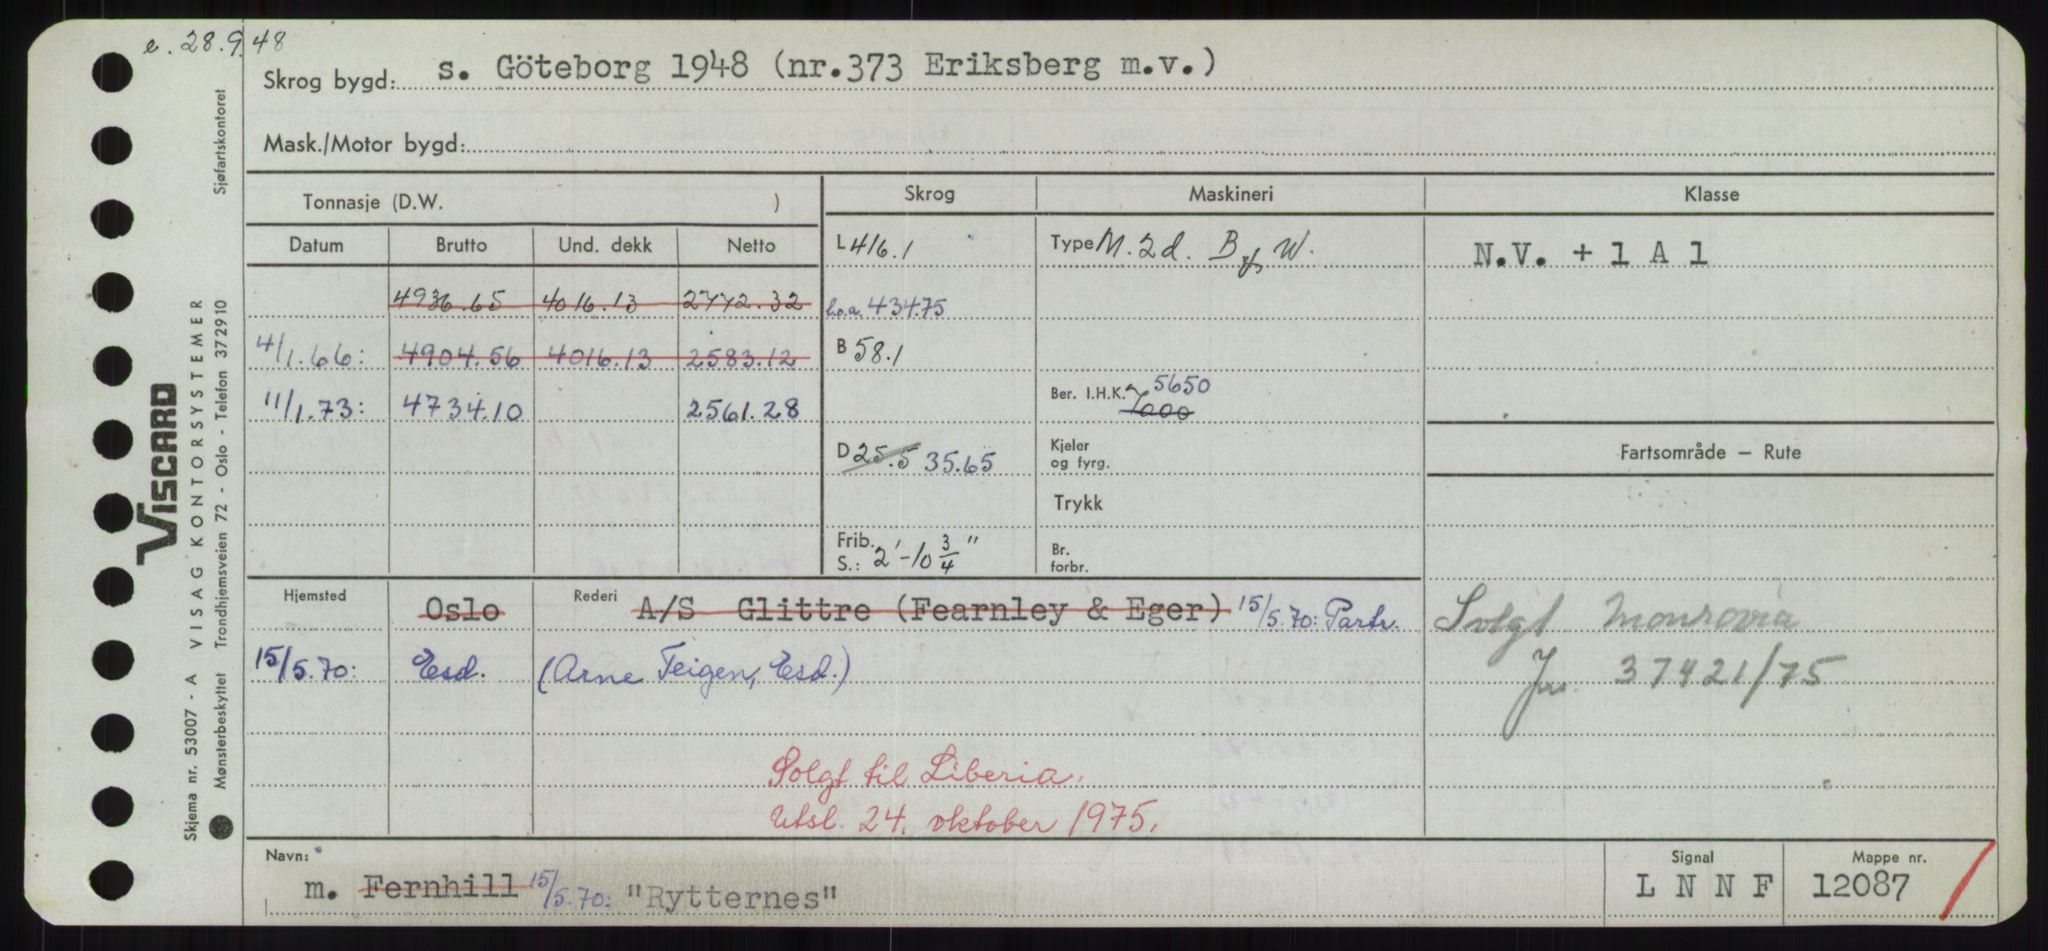 e. 28.9.48
Skrog bygd: s. Göteborg 1948 (nr.373 Eriksberg m.v.)
Mask./Motor bygd:
Tonnasje (D.W. )
Skrog
Maskineri
Klasse
Datum Brutto Und. dekk Netto
L 416.1
Type M. 2d. B & W.
N.V. + 1 A 1
4936.65 4016.13 2772.32
l.o.a. 434.75
4/1.66: 4904.56 4016.13 2583.12
B 58.1
11/1.73: 4734.10 2561.28
Ber. I.H.K. 7000 5650
D 25.5 35.65
Kjeler og fyrg.
Fartsområde – Rute
Trykk
Frib. S.: 2'-10 3/4"
Br. forbr.
Hjemsted Oslo Rederi A/S Glittre (Fearnley & Eger) 15/5.70: Partr.
15/5.70: Esd. (Arne Teigen, Esd.)
Solgt Monrovia
Jn. 37421/75
Solgt til Liberia.
Utsl. 24. oktober 1975.
Navn: m. Fernhill 15/5.70: "Rytternes"
Signal LNNF
Mappe nr. 12087
VISCARD
VISAG KONTORSYSTEMER
Skjema nr. 53007 - A
Mønsterbeskyttet Trondhjemsveien 72 - Oslo - Telefon 372910
Sjøfartskontoret